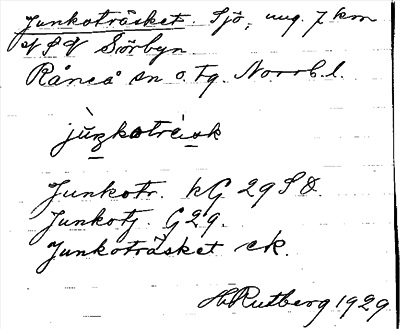 Junkoträsket. Sjö, ung. 7 km
Sörbyn
Råneå sn o. tg. Norrb. l.
Junkotr. kG 29 SO.
Junkotj. G 29.
Junkoträsket ek.
H Rutberg 1929